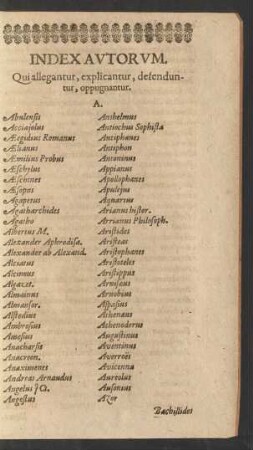 INDEX AVTORVM.
Qui allegantur, explicantur, defendun-
tur, oppugnantur.
A.
Abulensis
Acciajolus
Ægidius Romanus
Ælianus
Æmilius Probus
Æschylus
Æschines
Æsopus
Agapetus
Agatharchides
Agatho
Albertus M.
Alexander Aphrodisæ.
Alexander ab Alexand.
Alexarus
Alcimus
Almansor.
Alstedius
Ambrosius
Amesius
Anacharsis
Anacreon.
Anaximenes
Andreas Arnaudus
Angelus JCt.
Anshelmus
Antiochus Sophista
Antiphanes
Antiphon
Antoninus
Appianus
Apollophanes
Apulejus
Arrianus hister.
Arrianus Philosoph.
Aristides
Aristeas
Aristophanes
Aristoteles
Aristippus
Arnisæus
Arnobius
Aspasius
Athenæus
Athenodorus
Augustinus
Aventinus
Averroës
Avicenna
Aureolus
Ausonius
Azor
Bachilides